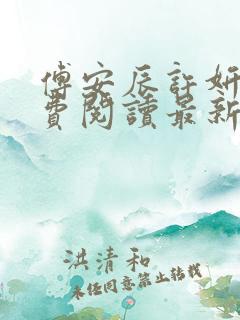 傅安辰許妍
費閱讀最新
洪清和
未經同意禁止轉載